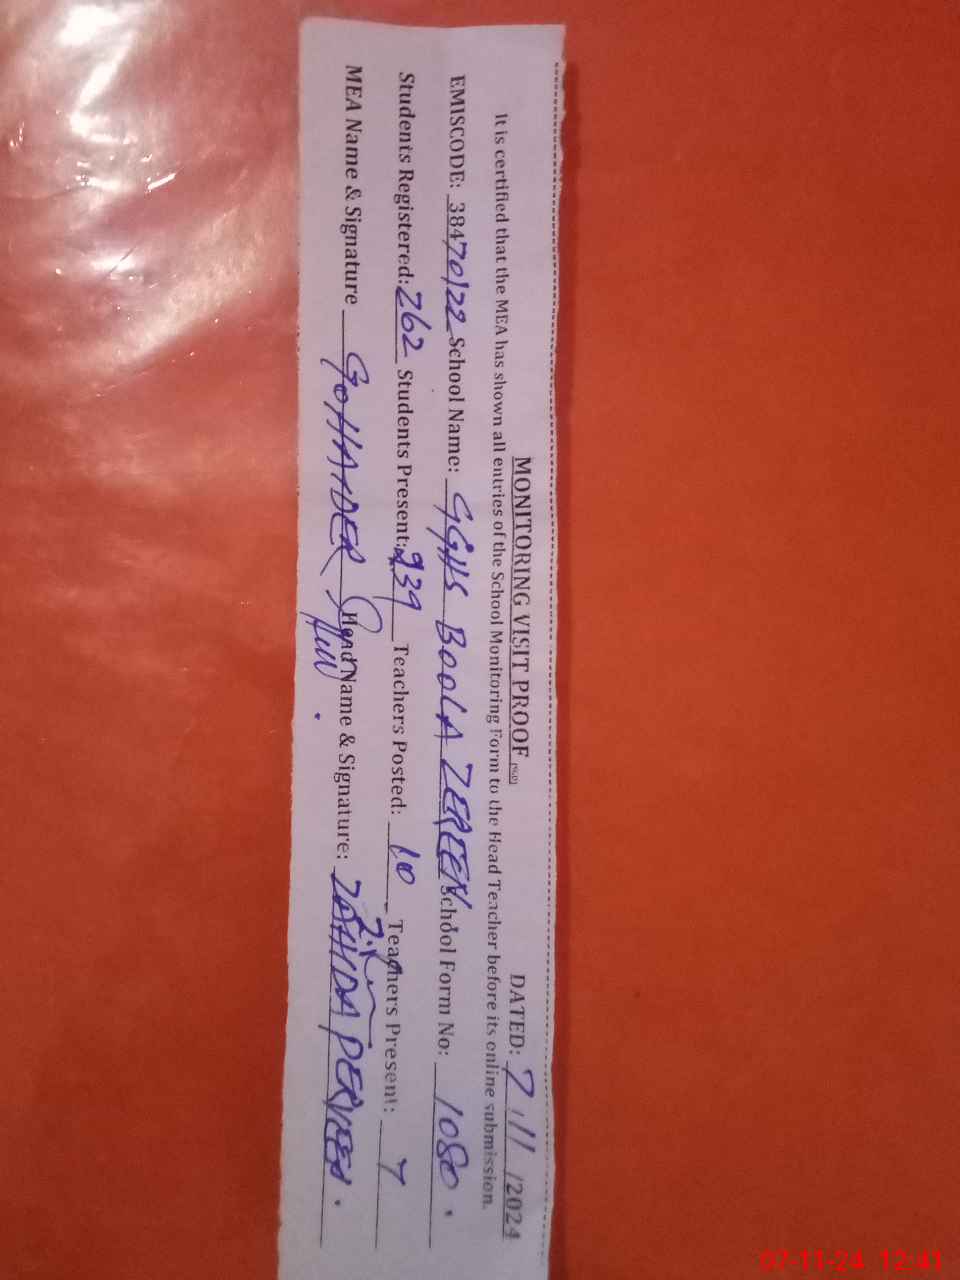 MONITORING VISIT PROOF DATED: 7/11/2024
It is certified that the MEA has shown all entries of the School Monitoring Form to the Head Teacher before its online submission.
EMISCODE: 38470122 School Name: GGHS BOOLA ZEREEN School Form No: 1080.
Students Registered: 262 Students Present: 239 Teachers Posted: 10 Teachers Present: 7
MEA Name & Signature GOHANDER Head Name & Signature: ZAHIDA PERVEEN.
07-11-24 12:41